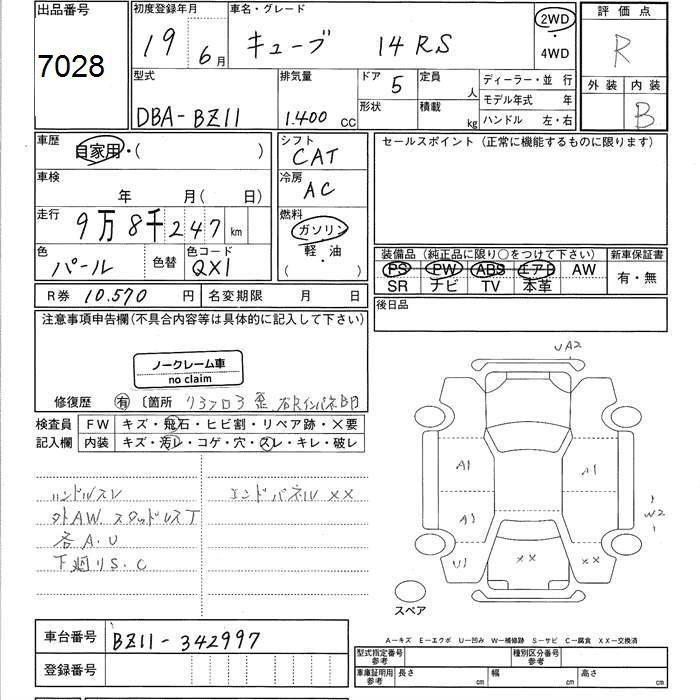 出品番号 初度登録年月 車名・グレード 2WD 評価点
7028 19 6月 キューブ 14RS ・ R
4WD
型式 排気量 ドア 5 定員 人 ディーラー・並 行 外装 内装
DBA-BZ11 1.400 cc 形状 積載 kg モデル年式 年 B
ハンドル 左・右
車歴 自家用・( ) シフト CAT セールスポイント(正常に機能するものに限ります)
車検 年 月( 日) 冷房 AC
走行 9万8千247 km 燃料 ガソリン
軽・油
( )
色 パール 色替 色コード QX1
装備品(純正品に限り○をつけて下さい) 新車保証書
PS PW ABS エアB AW 有・無
SR ナビ TV 本革
R券 10.570 円 名変期限 月 日 後日品
注意事項申告欄(不具合内容等は具体的に記入して下さい)
ノークレーム車
no claim
修復歴 有 〔箇所
検査員 FW キズ・飛石・ヒビ割・リペア跡・×要
記入欄 内装 キズ・汚レ・コゲ・穴・スレ・キレ・破レ
ハンドルスレ エンドパネル XX
外AW.スタッドレスT
各A.U
下廻りS.C
UA2
A1 A1
A1 W2
U1 XX XX
スペア
A-キズ E-エクボ U-凹み W-補修跡 S-サビ C-腐食 XX-交換済
車台番号 BZ11-342997
登録番号
型式指定番号 参考 種別区分番号 参考
車庫証明用 参考 長さ cm 幅 cm 高さ cm